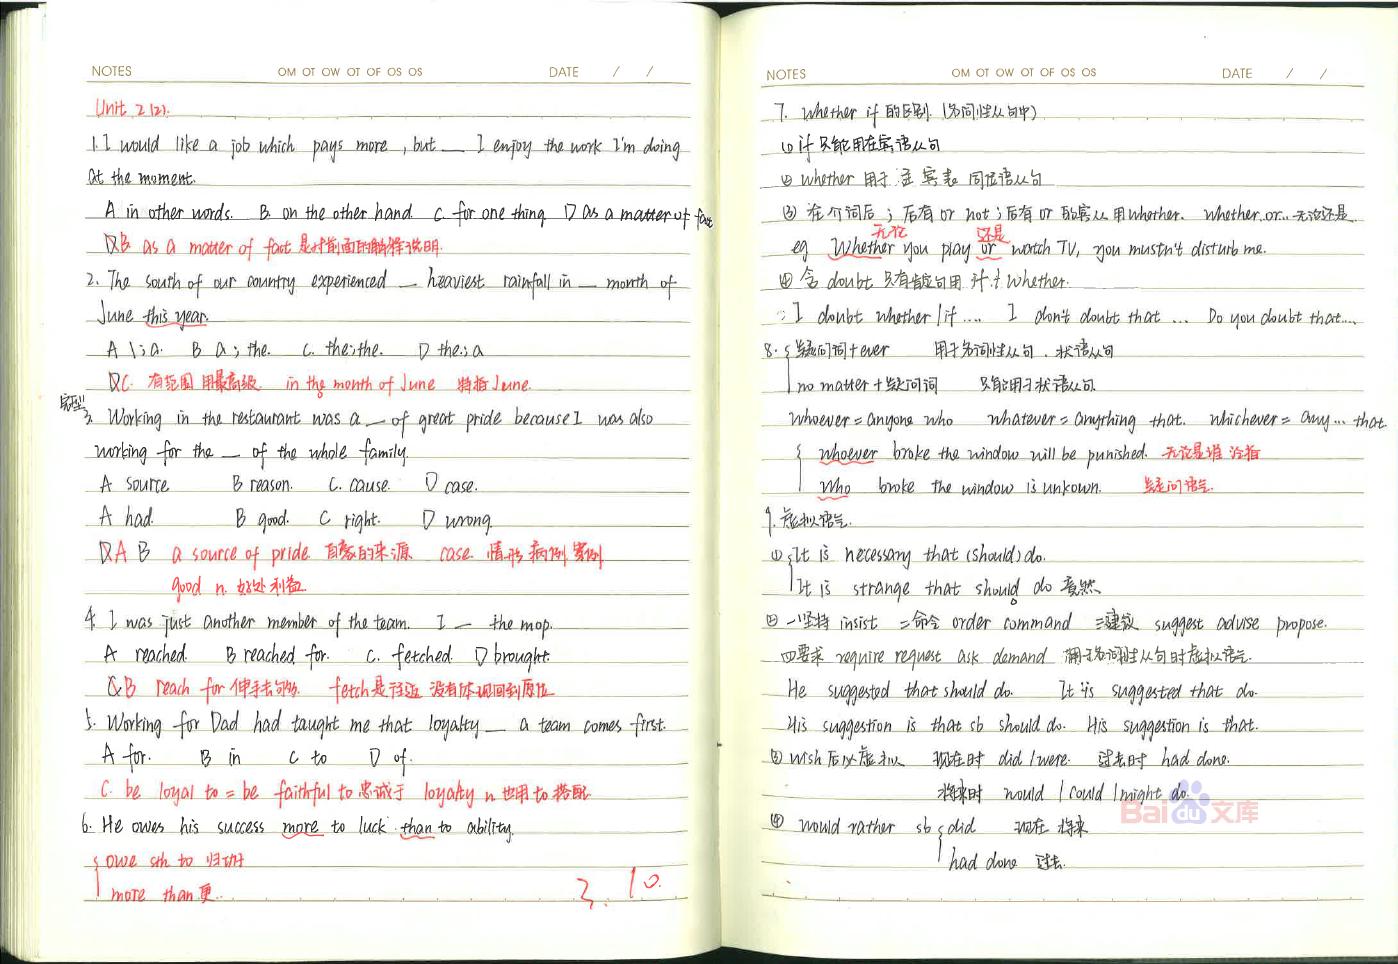 NOTES OM OT OW OT OF OS OS DATE / /
Unit 2 (2).
1. I would like a job which pays more, but __ I enjoy the work I'm doing
at the moment.
A in other words. B on the other hand C for one thing D as a matter of fact
B as a matter of fact 是对前面的解释说明
2. The south of our country experienced __ heaviest rainfall in __ month of
June this year.
A \; a. B a; the. C. the; the. D the; a
C. 有范围用最高级 in the month of June 特指June.
完型
3. Working in the restaurant was a __ of great pride because I was also
working for the __ of the whole family.
A source B reason. C. cause. D case.
A had. B good. C right. D wrong.
A B a source of pride 自豪的来源 case. 情形 病例 案例
good n. 好处 利益
4. I was just another member of the team. I __ the mop.
A reached. B reached for. C. fetched. D brought.
B reach for 伸手去够 fetch是往返 没有体现回到原位
5. Working for Dad had taught me that loyalty __ a team comes first.
A for. B in C to D of.
C. be loyal to = be faithful to 忠诚于 loyalty n 也用to搭配
6. He owes his success more to luck than to ability.
owe sth to 归功于
more than 更
3. 10.
NOTES OM OT OW OT OF OS OS DATE / /
7. whether if 的区别. (名词性从句中)
① if 只能用在宾语从句
② whether 用于 主 宾 表 同位语从句
③ 在介词后; 后有 or not; 后有 or 的宾从用whether. whether...or... 无论还是
无论 还是
eg Whether you play or watch TV, you mustn't disturb me.
④ 含 doubt 只有肯定句用 if 与 whether.
I doubt whether/if .... I don't doubt that ... Do you doubt that....
8. 疑问词+ever 用于名词性从句、状语从句
no matter+疑问词 只能用于状语从句
whoever = anyone who whatever = anything that. whichever = any... that
whoever broke the window will be punished. 无论是谁 泛指
who broke the window is unkown. 疑问语气
9. 虚拟语气.
① It is necessary that (should) do.
It is strange that should do 竟然
② 一坚持 insist 二命令 order command 三建议 suggest advise propose.
四要求 require request ask demand 用于名词性从句时虚拟语气.
He suggested that should do. It is suggested that do.
His suggestion is that sb should do. His suggestion is that.
③ wish 后以虚拟 现在时 did / were. 过去时 had done.
将来时 would / could / might do.
④ would rather sb did 现在 将来
had done 过去.
Baidu文库